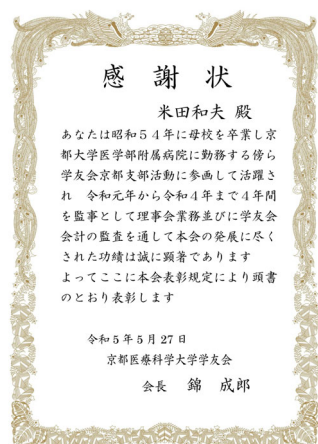 感謝状
米田和夫 殿
あなたは昭和５４年に母校を卒業し京
都大学医学部附属病院に勤務する傍ら
学友会京都支部活動に参画して活躍さ
れ　令和元年から令和４年まで４年間
を監事として理事会業務並びに学友会
会計の監査を通して本会の発展に尽く
された功績は誠に顕著であります
よってここに本会表彰規定により頭書
のとおり表彰します
令和５年５月 27 日
京都医療科学大学学友会
会長　錦　成郎